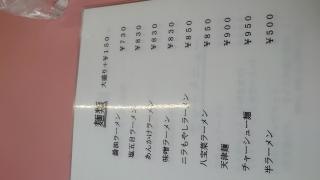 麺類 大盛り+¥150
醤油ラーメン ¥730
塩五目ラーメン ¥830
あんかけラーメン ¥830
味噌ラーメン ¥830
ニラもやしラーメン ¥850
八宝菜ラーメン ¥850
天津麺 ¥900
チャーシュー麺 ¥950
半ラーメン ¥500